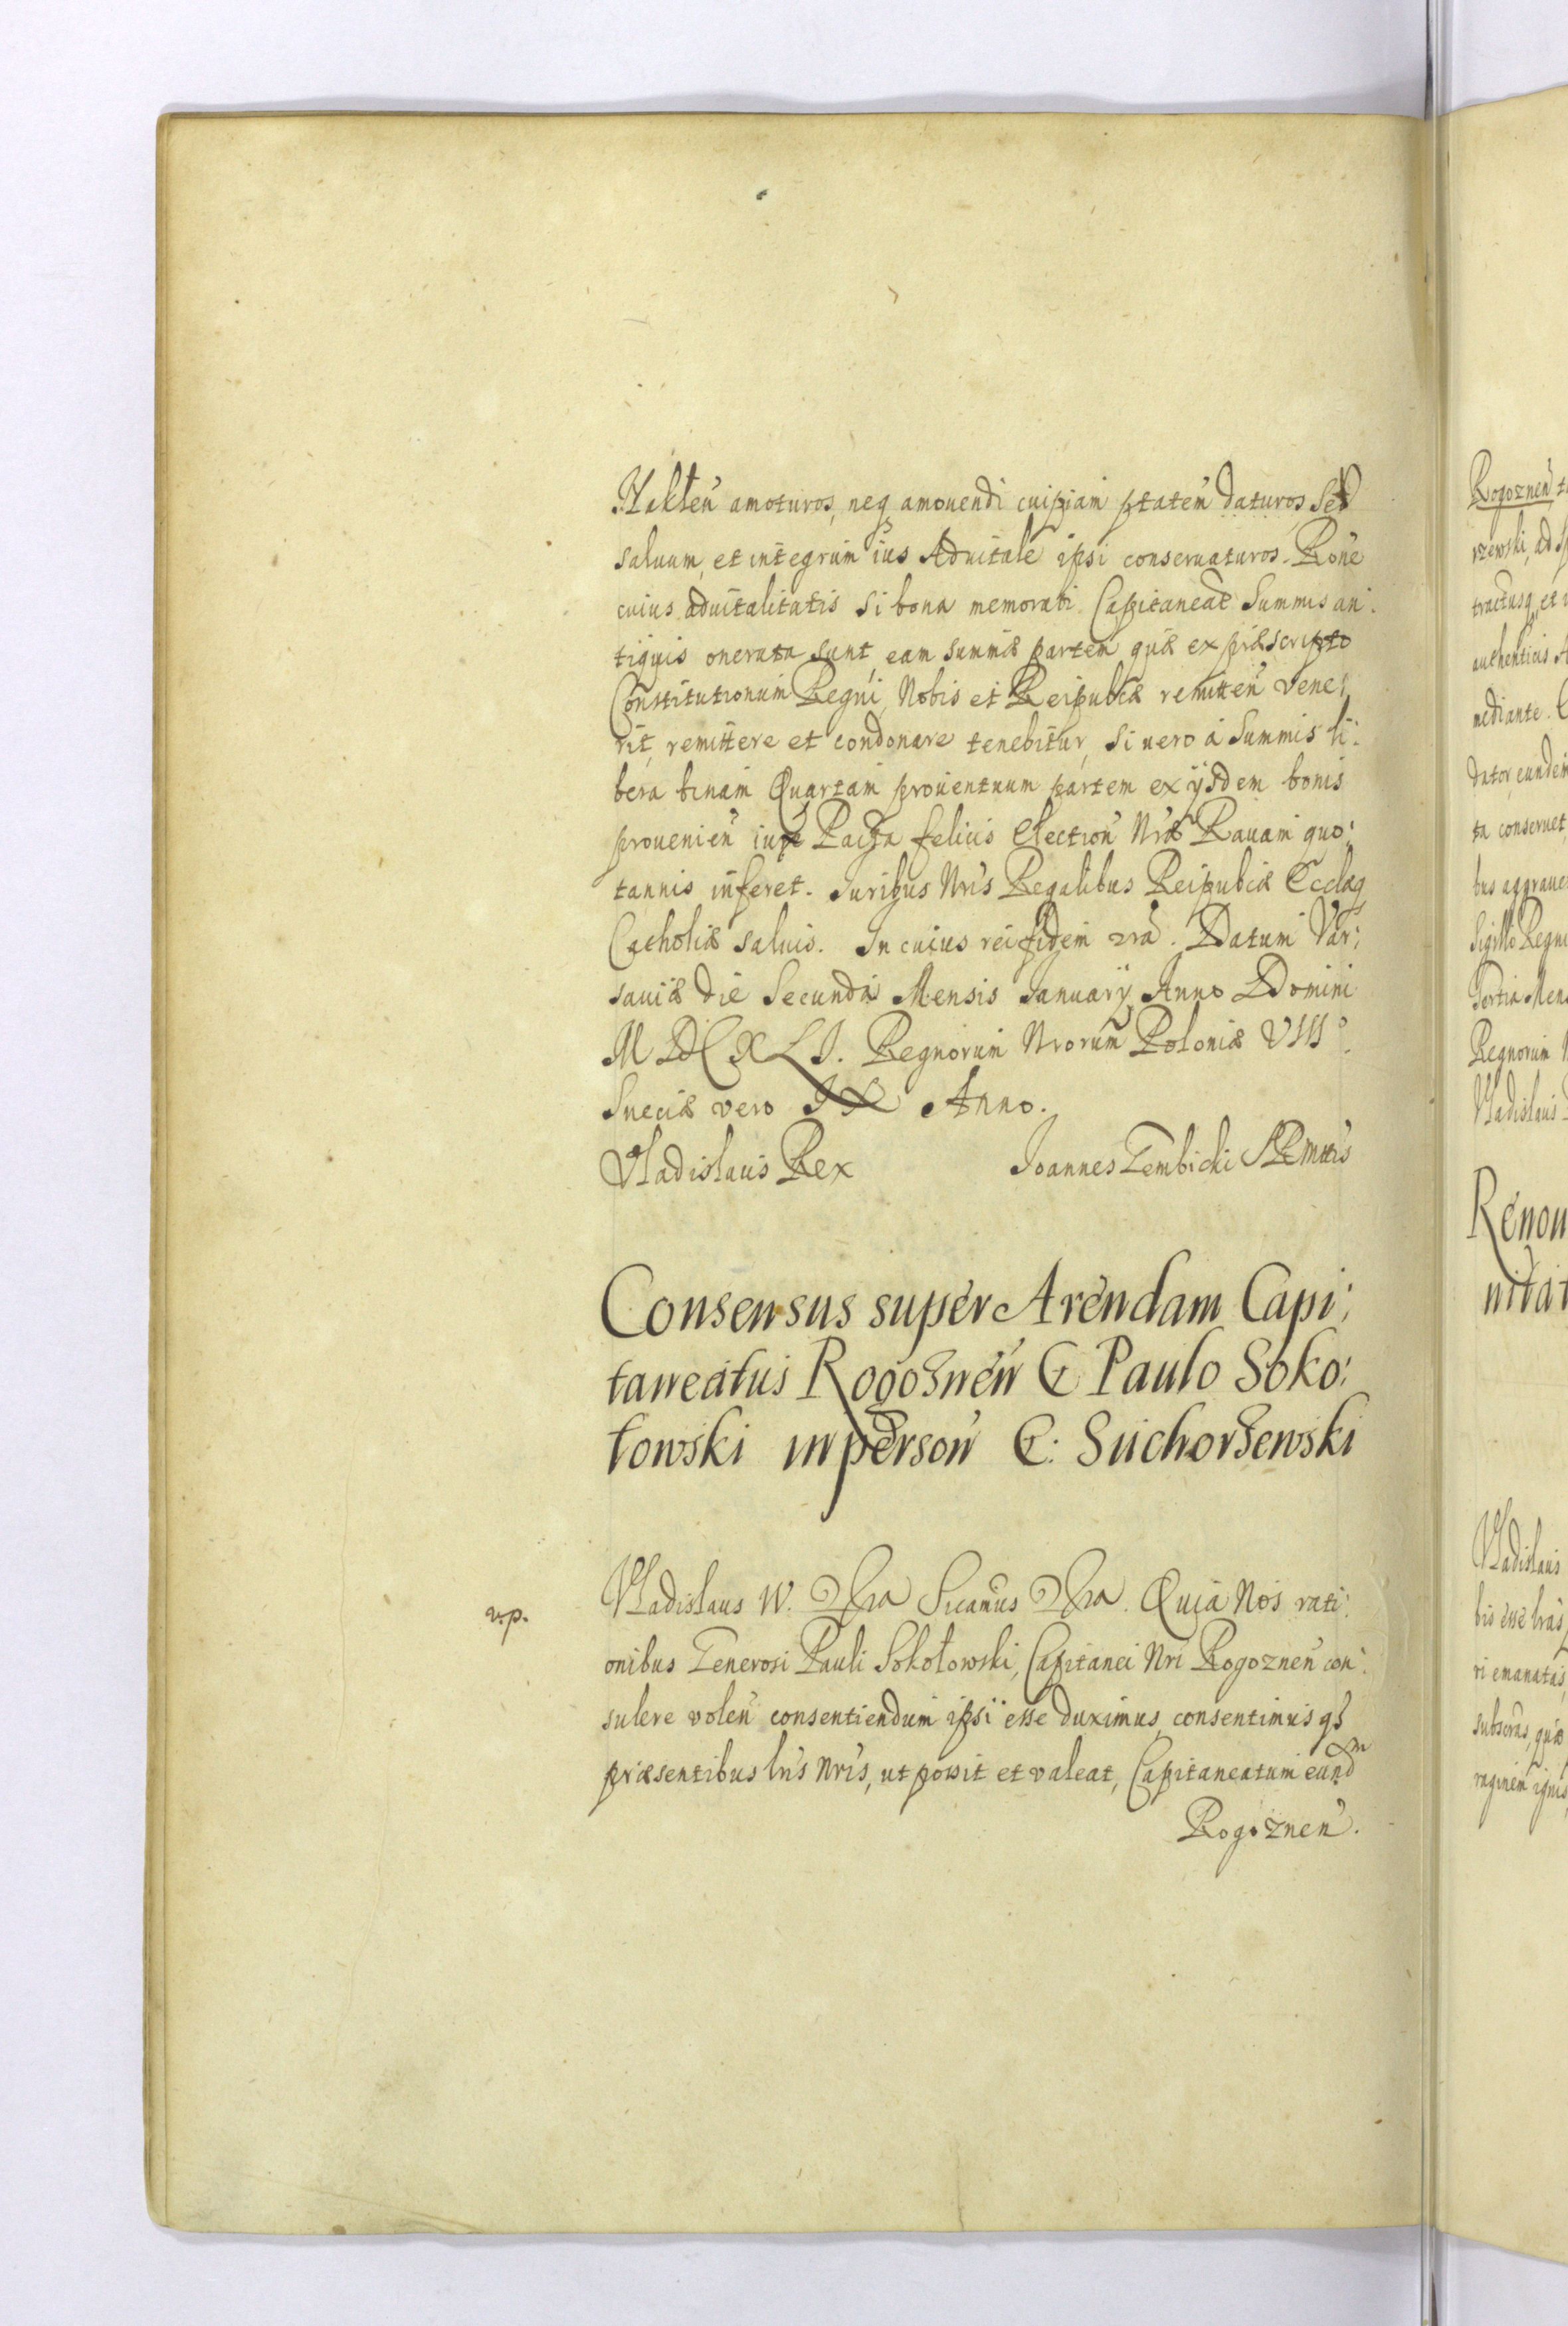 Naklen̄ amoturos, neq amouendi cuipiam ptaten̄ daturos, Sed
saluum, et integrum ius Aduitale ipsi conseruaturos. Rōne
cuius aduitalitatis si bona memorati Capitaneat̄ Summis an:
tiquis onerata sunt, eam summæ partem quæ ex præscripto
Constitutionum Regni, Nobis et Reipublcæ remitten̄ vene:
rit, remittere et condonare tenebitur, Si uero á Summis li:
bera binam Quartam prouentuum partem ex ijsdem bonis
prouenien̄ iuxta Pacta felicis Election̄ Nræ Rauam quo:
tannis inferet. Juribus Nris Regalibus Reipublcæ Ecclæq
Catholicæ saluis. In cuius rei fidem etra. Datum Var:
sauiæ die Secunda Mensis Januarij Anno Domini
MDCXLI. Regnorum Nrorum Poloniæ VIII°
Sueciæ vero IX Anno.
Vladislaus Rex Joannes Gembicki
Consensus super Arendam Capi:
taneatus Rogoznen̄ G Paulo Soko:
łowski in person̄ G: Suchorzewski
Vladislaus IV. Etra Sicanus Etra. Quia Nos rati:
v.p.
onibus Generosi Pauli Sokołowski, Capitanei Nri Rogoznen̄ con:
sulere volen̄ consentiendum ipsi esse duximus, consentimusqȝ
præsentibus lris Nris, ut possit et valeat, Capitaneatum eundm
Rogoznen̄.
Rogoznen̄
rzewski, ad
tractusq et
authenticis
mediante.
dator eundem
ta conseruet
bus aggraue
Sigillo Regni
Tertia Mens
Regnorum
Vladislaus
Renou
nitat
Vladislaus
bis esse lras
ri emanatas,
subscras, quæ
raginem ignis